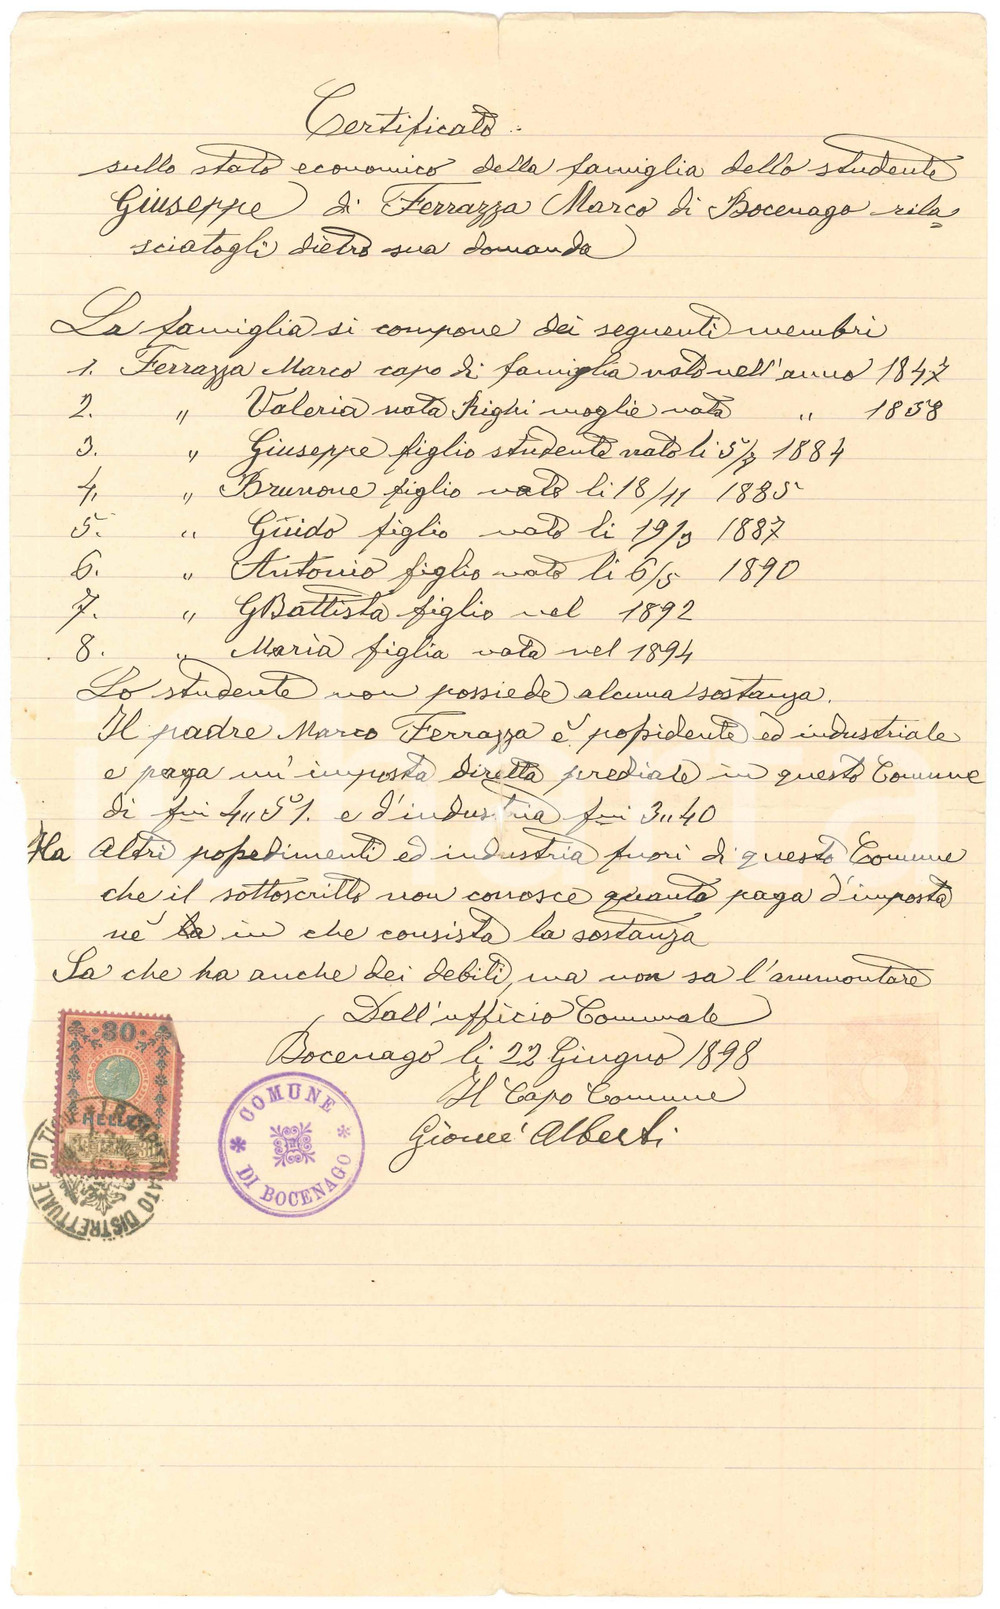 Certificato
sullo stato economico della famiglia dello studente
Giuseppe di Ferrazza Marco di Bocenago rila
sciatogli dietro sua domanda
La famiglia si compone dei seguenti membri
1. Ferrazza Marco capo di famiglia nato nell'anno 1847
2. " Valeria nata Righi moglie nata " 1858
3. " Giuseppe figlio studente nato li 5/7 1884
4. " Brunone figlio nato li 18/11 1885
5. " Guido figlio nato li 19/9 1887
6. " Antonio figlio nato li 6/5 1890
7. " GBattista figlio nel 1892
8. " Maria figlia nata nel 1894
Lo studente non possiede alcuna sostanza.
Il padre Marco Ferrazza è possidente ed industriale
e paga un'imposta diretta prediale in questo Comune
di fni 4"51. e d'industria fni 3"40
Ha altri possedimenti ed industria fuori di questo Comune
che il sottoscritto non conosce quanto paga d'imposta
nè in che consista la sostanza
Sa che ha anche dei debiti, ma non sa l'ammontare
Dall'ufficio Comunale
Bocenago li 22 Giugno 1898
Il Capo Comune
Alberti
30
HELLER
COMUNE DI BOCENAGO
DISTRETTUALE DI